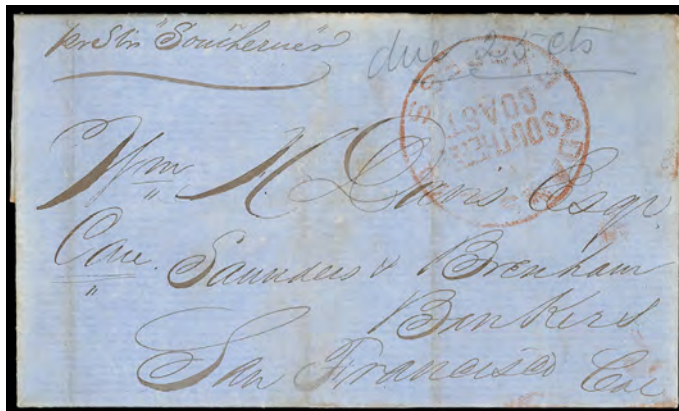 pr Str "Southerner"
due 25 cts
ADAMS & CO. EXPRESS
SOUTHERN
COAST
Wm H Davis Esqr.
Care Saunders & Brenham
Bankers
San Francisco Cal